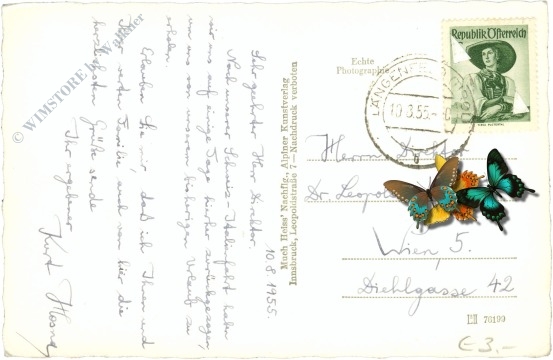 10.8.1955.
Sehr geehrter Herr Direktor.
Nach unserer Schweiz-Italienfahrt haben
wir uns auf einige Tage hierher zurückgezogen,
um uns von unserem bisherigen Urlaub zu
erholen.
Erlauben Sie mir, daß ich Ihnen und
Ihrer werten Familie, auch von hier die
herzlichsten Grüße sende
Ihr ergebener
Kurt
© WIMSTORE
Much Heiss' Nachflg., Alpiner Kunstverlag
Innsbruck, Leopoldstraße 7 — Nachdruck verboten
Echte
Photographie
Republik Österreich
LÄNGENFELD
10.8.55
Herrn Direktor
Dr. Leopold
Wien, 5.
Diehlgasse 42
76199
€ 3,-